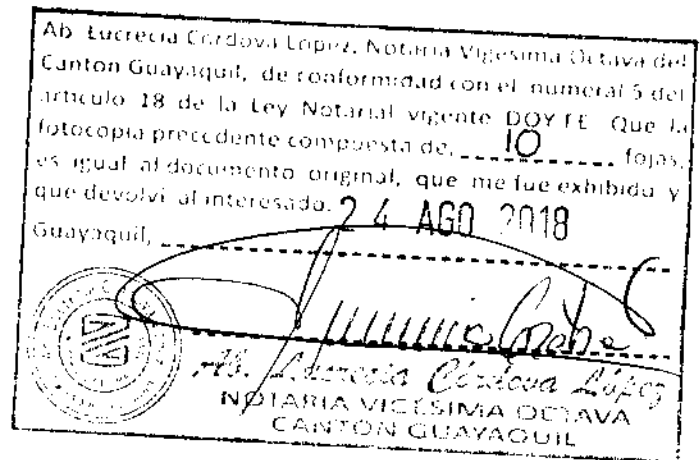 Ab. Lucrecia Córdova López, Notaria Vigesima Octava del
Canton Guayaquil, de conformidad con el numeral 5 del
articulo 18 de la Ley Notarial vigente DOY FE Que la
fotocopia precedente compuesta de, 10 fojas,
es igual al documento original, que me fue exhibido y
que devolvi al interesado.
24 AGO 2018
Guayaquil,
Ab. Lucrecia Córdova López
NOTARIA VIGESIMA OCTAVA
CANTON GUAYAQUIL